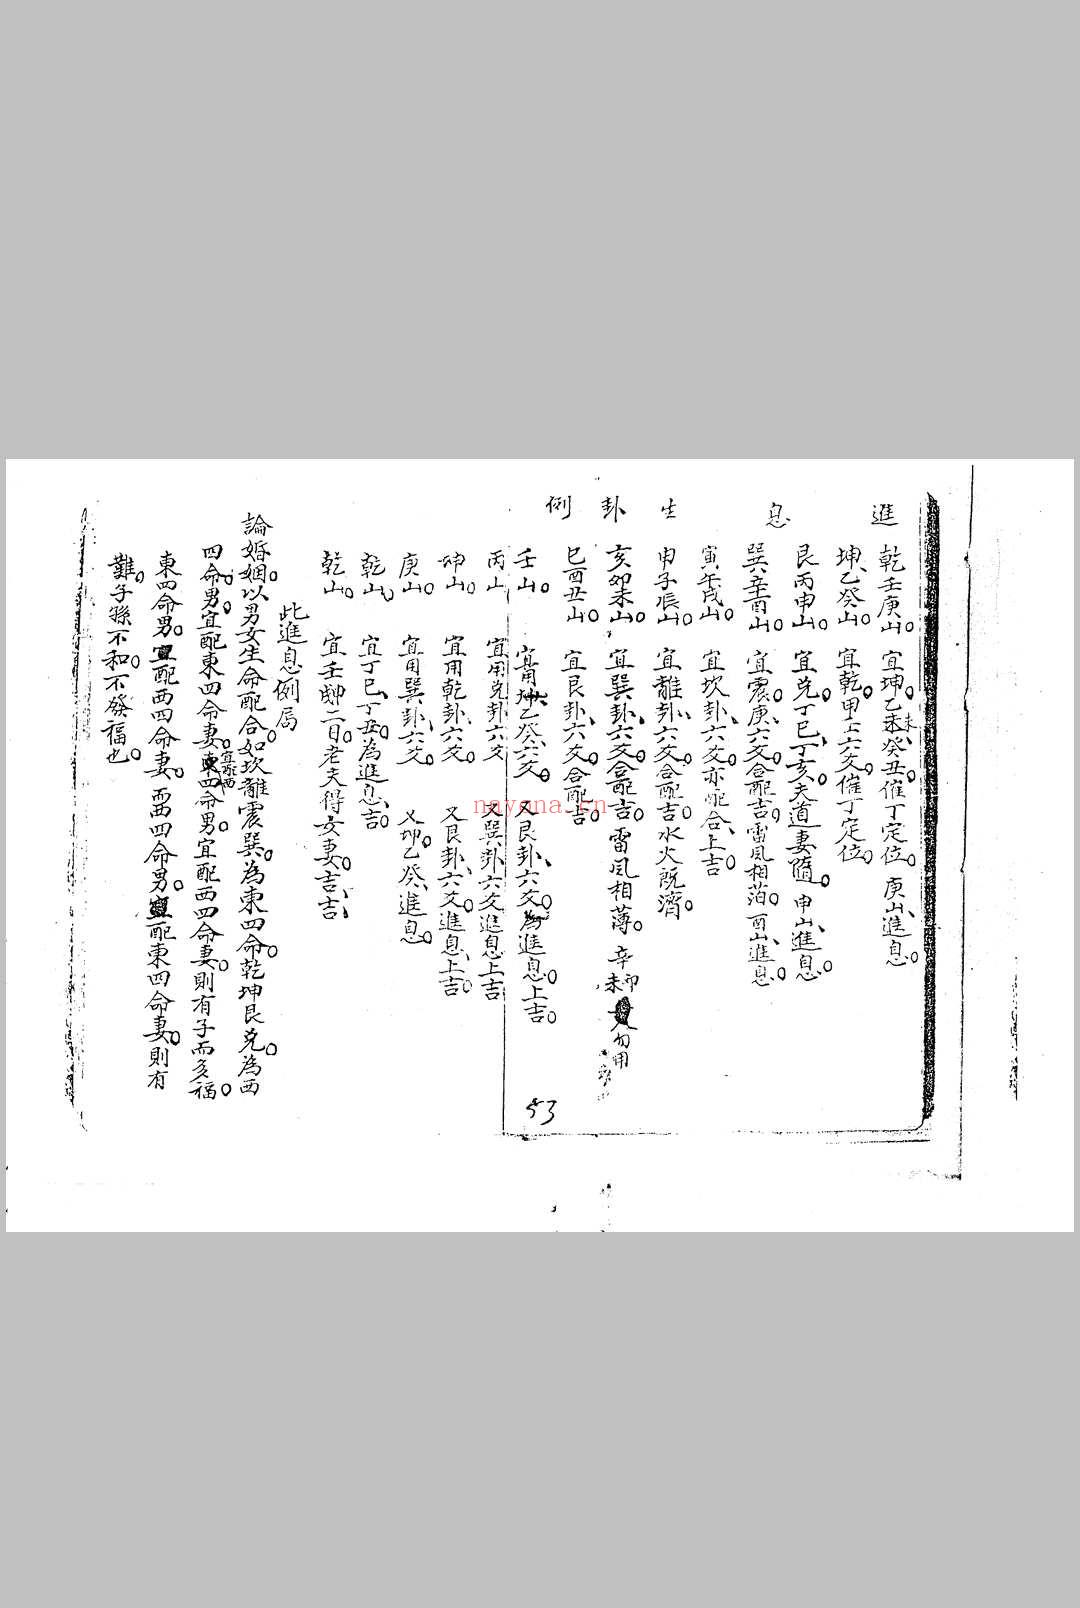 進息生卦例
乾壬庚山。宜坤。乙未、癸丑。催丁定位。庚山、進息。
坤、乙癸山。宜乾。甲壬六爻。催丁定位。
艮丙申山。宜兌。丁巳、丁亥。夫道妻隨。申山、進息。
巽辛酉山。宜震。庚、六爻。合配吉。雷風相泊。酉山、進息。
寅午戌山。宜坎、卦、六爻。亦配合、上吉。
申子辰山。宜離、卦、六爻。合配吉。水火既濟。
亥卯未山。宜巽、卦、六爻。合配吉。雷風相薄。辛卯未 勿用
巳酉丑山。宜艮、卦、六爻。合配吉。
壬山。宜用坤、乙癸、六爻。又艮卦、六爻。為進息。上吉。
丙山 宜用兌卦六爻 又巽卦六爻進息上吉
坤山。宜用乾、卦、六爻。又艮卦、六爻。進息、上吉。
庚山。宜用巽、卦、六爻。又坤。乙癸、進息。
乾山。宜丁巳、丁丑。為進息、吉。
乾山。宜壬 二日。老夫得女妻。吉、吉、
此進息例局
論婚姻。以男女生命配合。如坎離震巽。為東四命。乾坤艮兌。為西
四命。男。宜配東四命妻。東四命男。宜配西四命妻。則有子而多福。
東四命男。宜配西四命妻。西四命男。宜配東四命妻。則有
難。子孫不和。不發福也。
53
nayona.cn